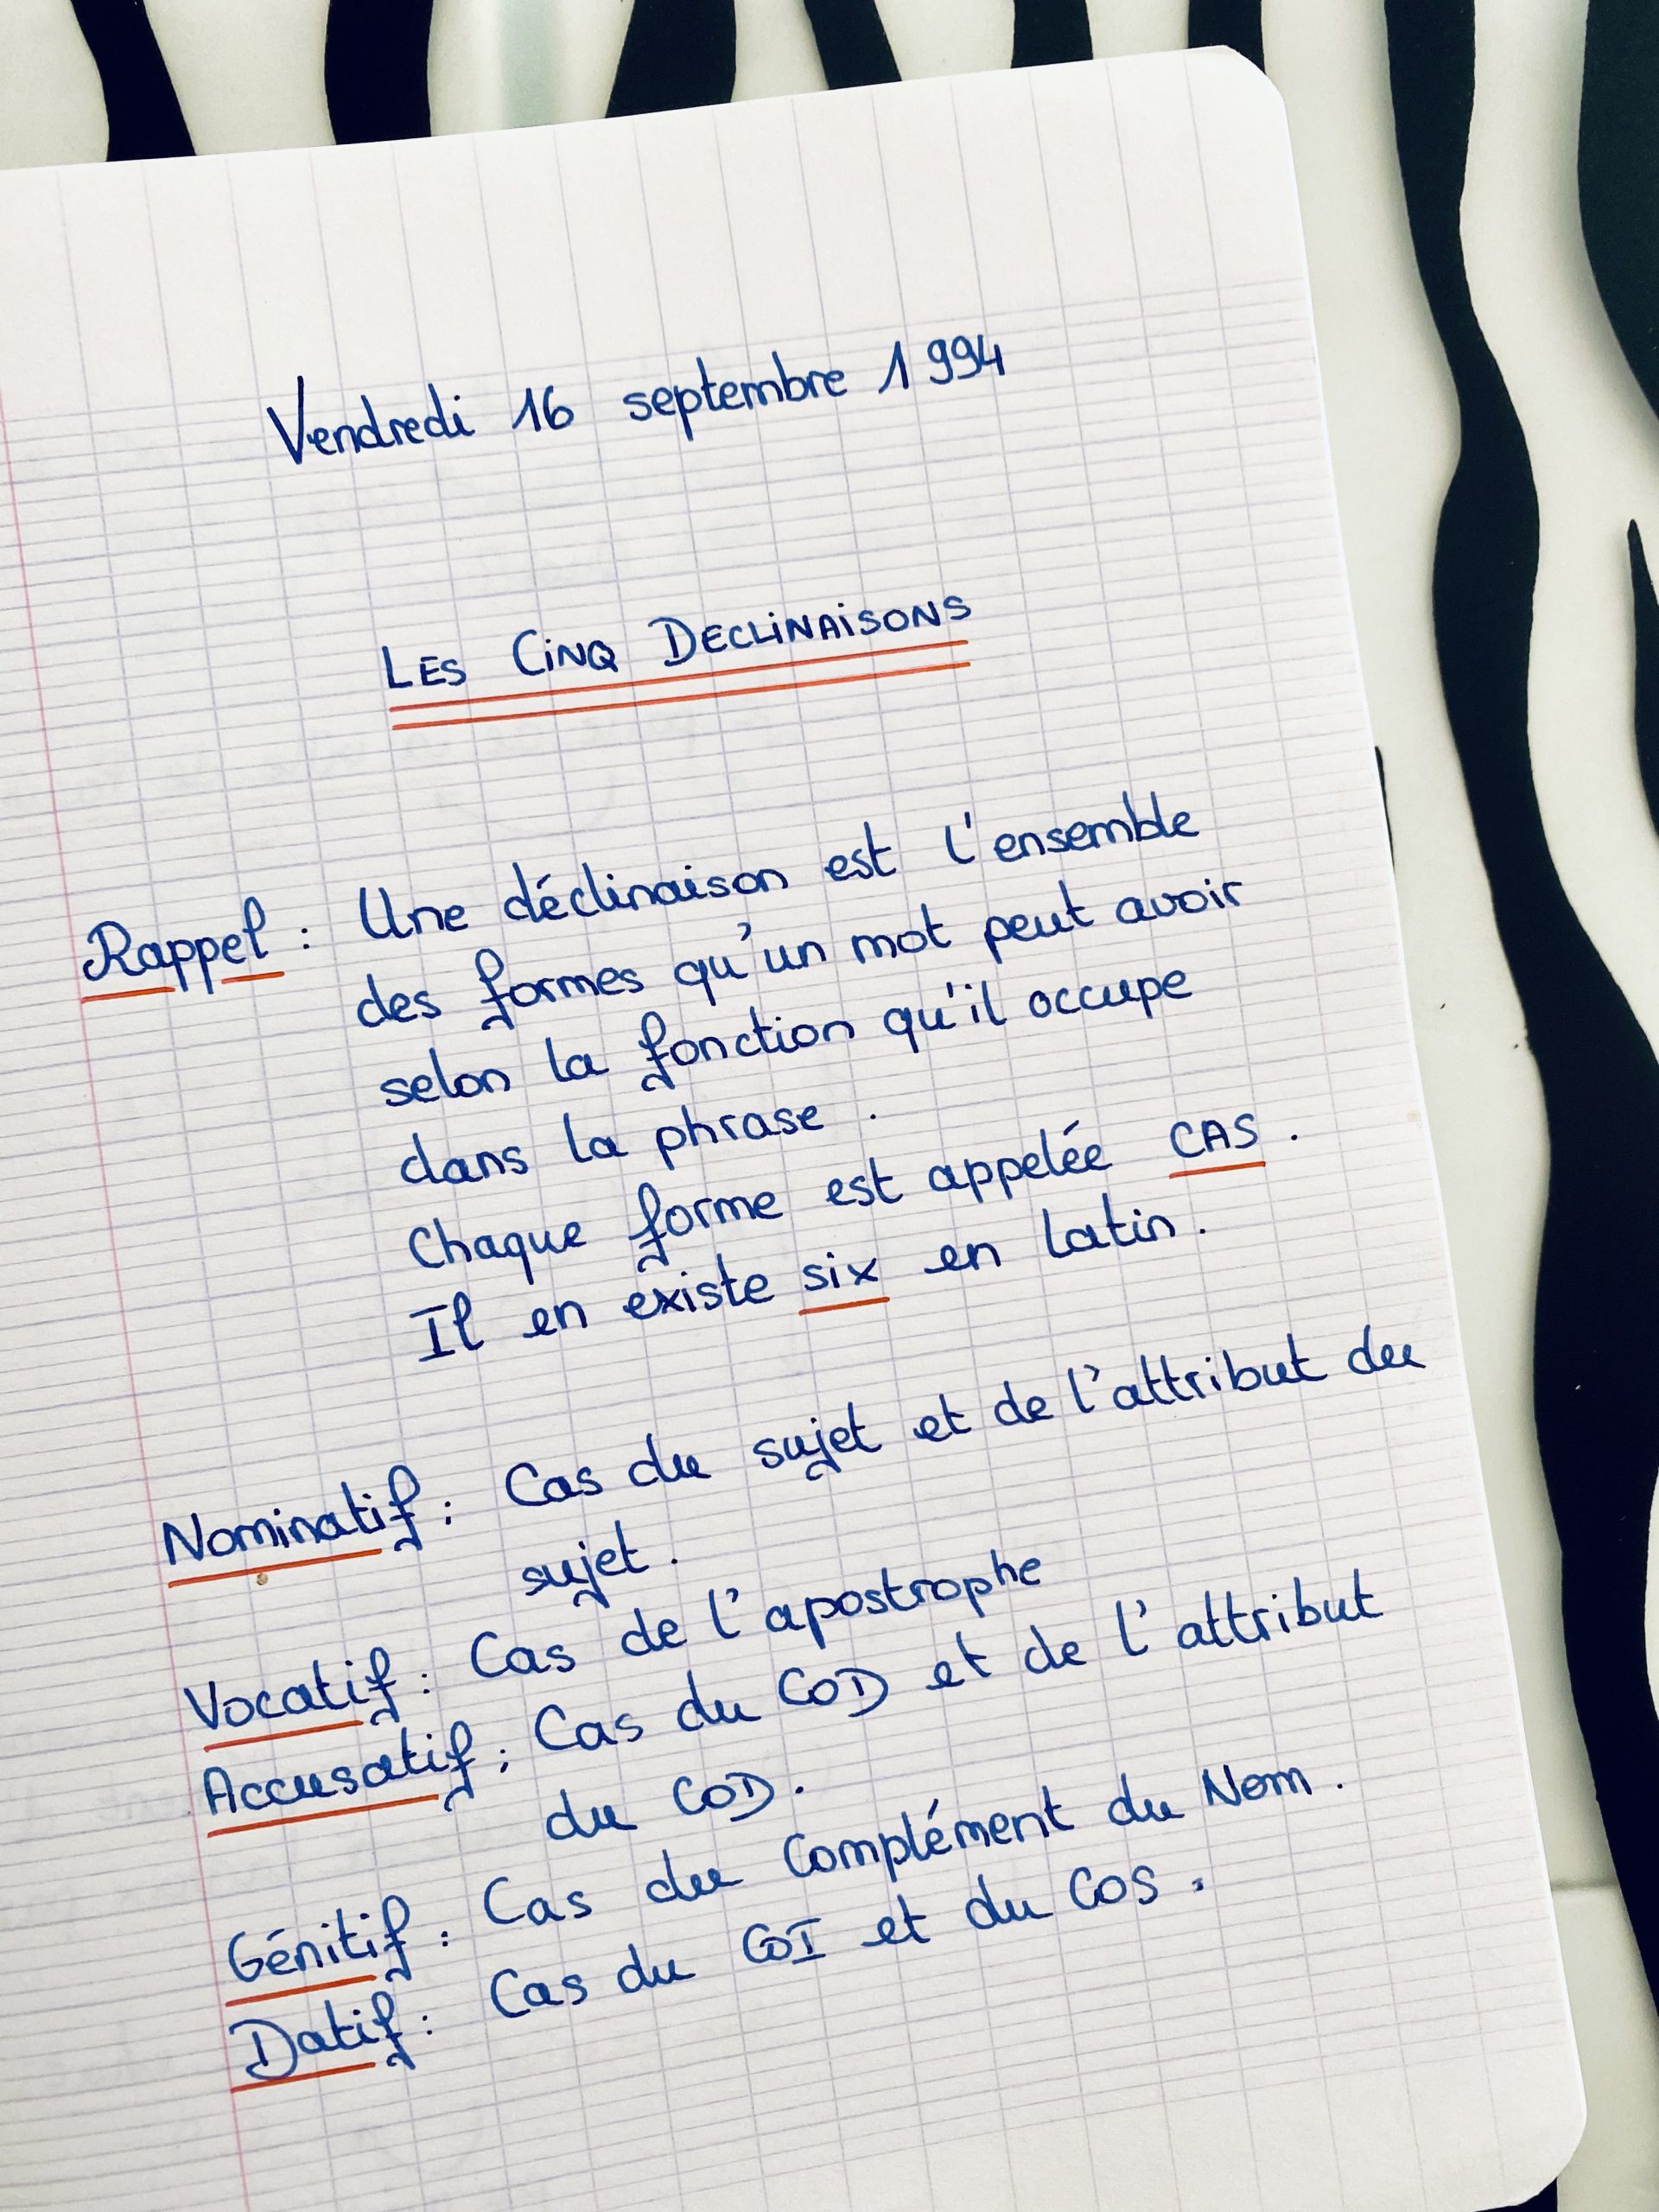 Vendredi 16 septembre 1994
LES CINQ DECLINAISONS
Rappel : Une déclinaison est l'ensemble
des formes qu'un mot peut avoir
selon la fonction qu'il occupe
dans la phrase .
Chaque forme est appelée CAS .
Il en existe six en latin .
Nominatif : Cas du sujet et de l'attribut du
sujet .
Vocatif : Cas de l'apostrophe
Accusatif : Cas du COD et de l'attribut
du COD .
Génitif : Cas du Complément du Nom .
Datif : Cas du COI et du COS .